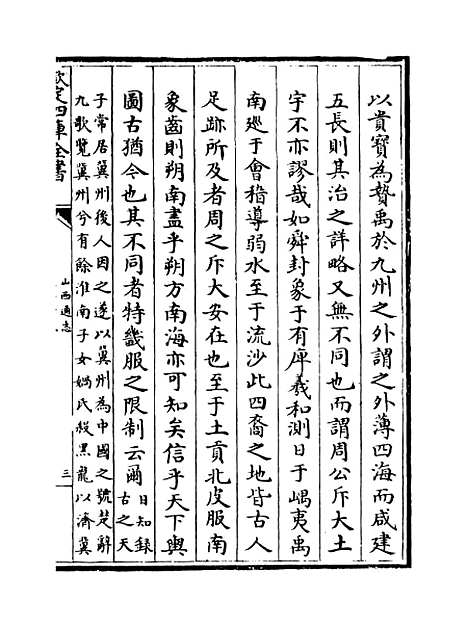 以貴寶為贄禹於九州之外謂之外薄四海而咸建
五長則其治之詳略又無不同也而謂周公斥大土
宇不亦謬哉如舜封象于有庳羲和測日于嵎夷禹
南廵于會稽導弱水至于流沙此四裔之地皆古人
足跡所及者周之斥大安在也至于土貢北皮服南
象齒則朔南盡乎朔方南海亦可知矣信乎天下輿
圖古猶今也其不同者特畿服之限制云爾
日知錄
古之天
子常居冀州後人因之遂以冀州為中國之號楚辭
九歌覽冀州兮有餘淮南子女媧氏殺黑龍以濟冀
欽定四庫全書
山西通志
三